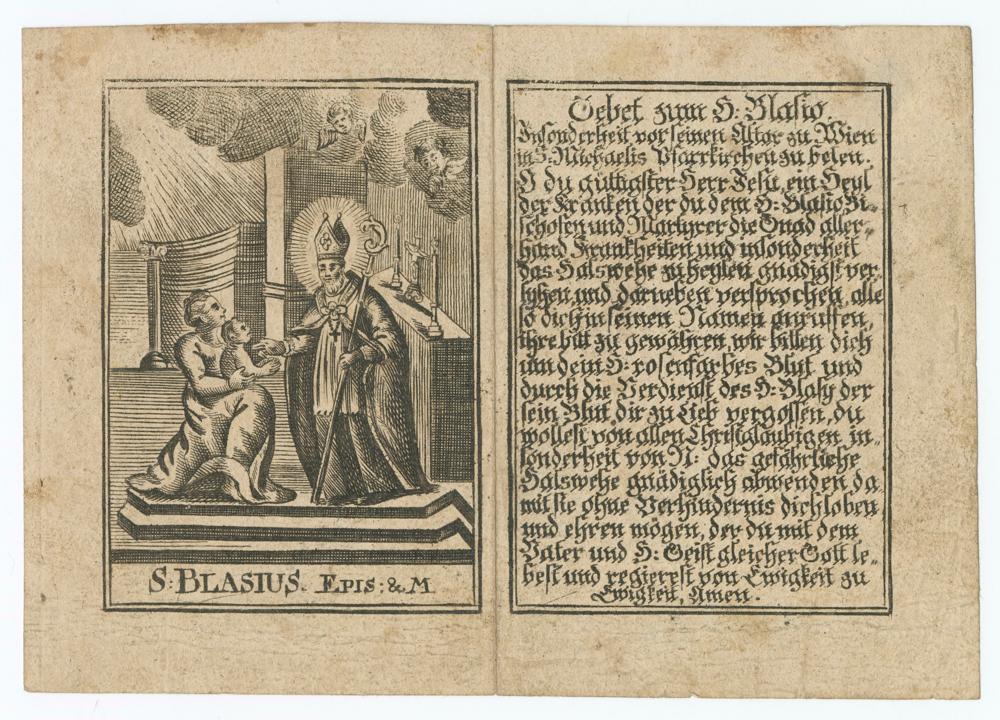 S. BLASIUS. EPIS: & M
Gebet zum H: Blasio,
Insonderheit vor seinen Altar zu Wien
in S: Michaelis Pfarrkirchen zu beten.
O du güttigster Herr Jesu, ein Heyl
der Kranken der du dem H: Blasio Bi=
schofen und Martyrer die Gnad aller=
hand Krankheiten und insonderheit
das Halswehe zu heylen gnädigst ver
lyhen und darneben versprochen, alle
so dich in seinen Namen anruffen,
ihre bitt zu gewähren, wir bitten dich
um dein H: rosenfarbes Blut und
durch die Verdienst des H: Blasy der
sein Blut dir zu Lieb vergossen, du
wollest von allen Christglaubigen in=
sonderheit von N: das gefährliche
Halswehe gnädiglich abwenden da
mit sie ohne Verhindernis dich loben
und ehren mögen, der du mit dem
Vater und H: Geist gleicher Gott le=
best und regierest von Ewigkeit zu
Ewigkeit, Amen.